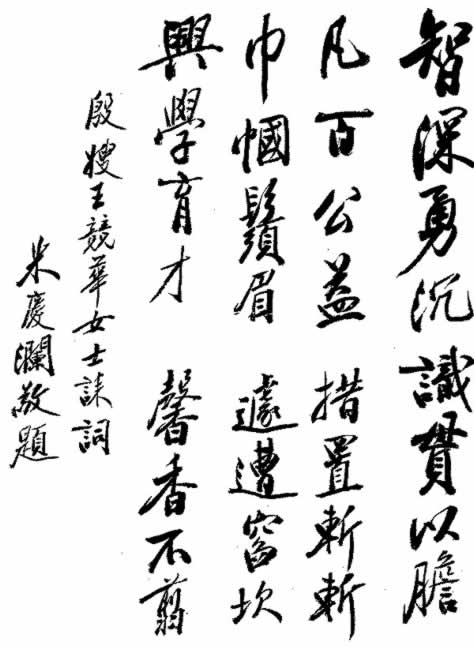 智深勇沉 識貫以膽
凡百公益 措置斬斬
巾幗鬚眉 遽遭窞坎
興學育才 馨香不翦
殷嫂王競華女士誄詞
朱慶瀾敬題